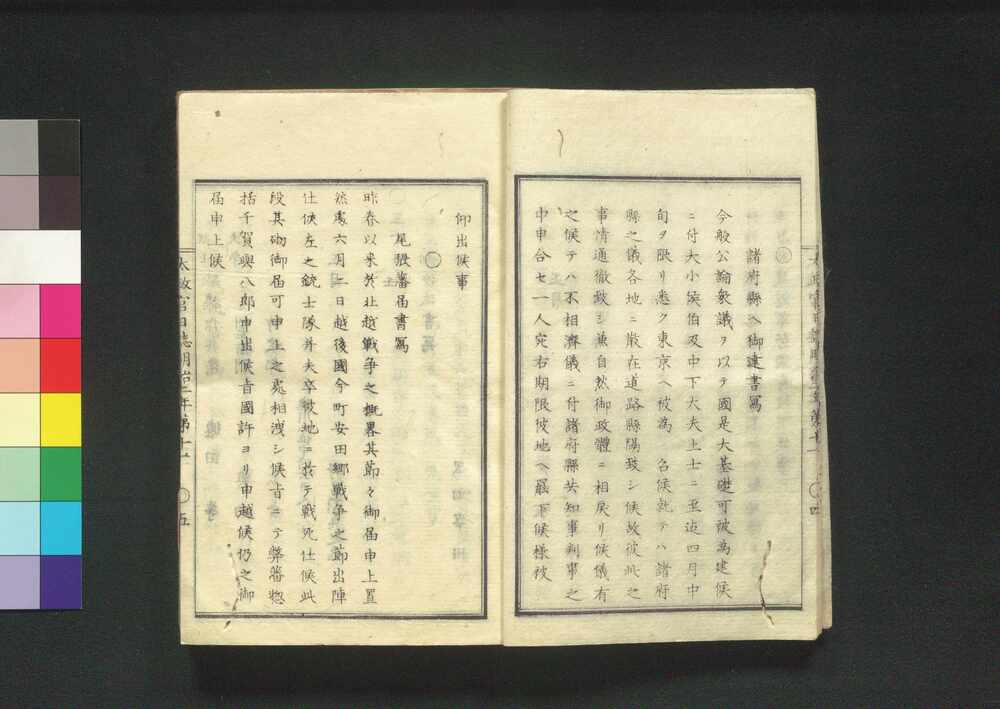 諸府縣ヘ御達書寫
今般公論衆議ヲ以テ國是大基礎可被為建候
ニ付大小侯伯及中下大夫上士ニ至迄四月中
旬ヲ限リ悉ク東京ヘ被為 召候就テハ諸府
縣之儀各地ニ散在道路縣隔致シ候故彼此之
事情通徹致シ兼自然御政體ニ相戻リ候儀有
之候テハ不相濟儀ニ付諸府縣共知事判事之
中申合セ一人宛右期限彼地ヘ罷下候様被
仰出候事
○
尾張藩届書寫
昨春以来於北越戦争之概畧其節々御届申上置
然處六月二日越後國今町安田郷戦争之節出陣
仕候左之銃士隊并夫卒彼地ニ於テ戦死仕候此
段其砌御届可申上之處相洩シ候旨ニテ弊藩惣
括千賀與八郎申出候旨國許ヨリ申越候仍之御
届申上候
太政官日誌明治二年第十
五